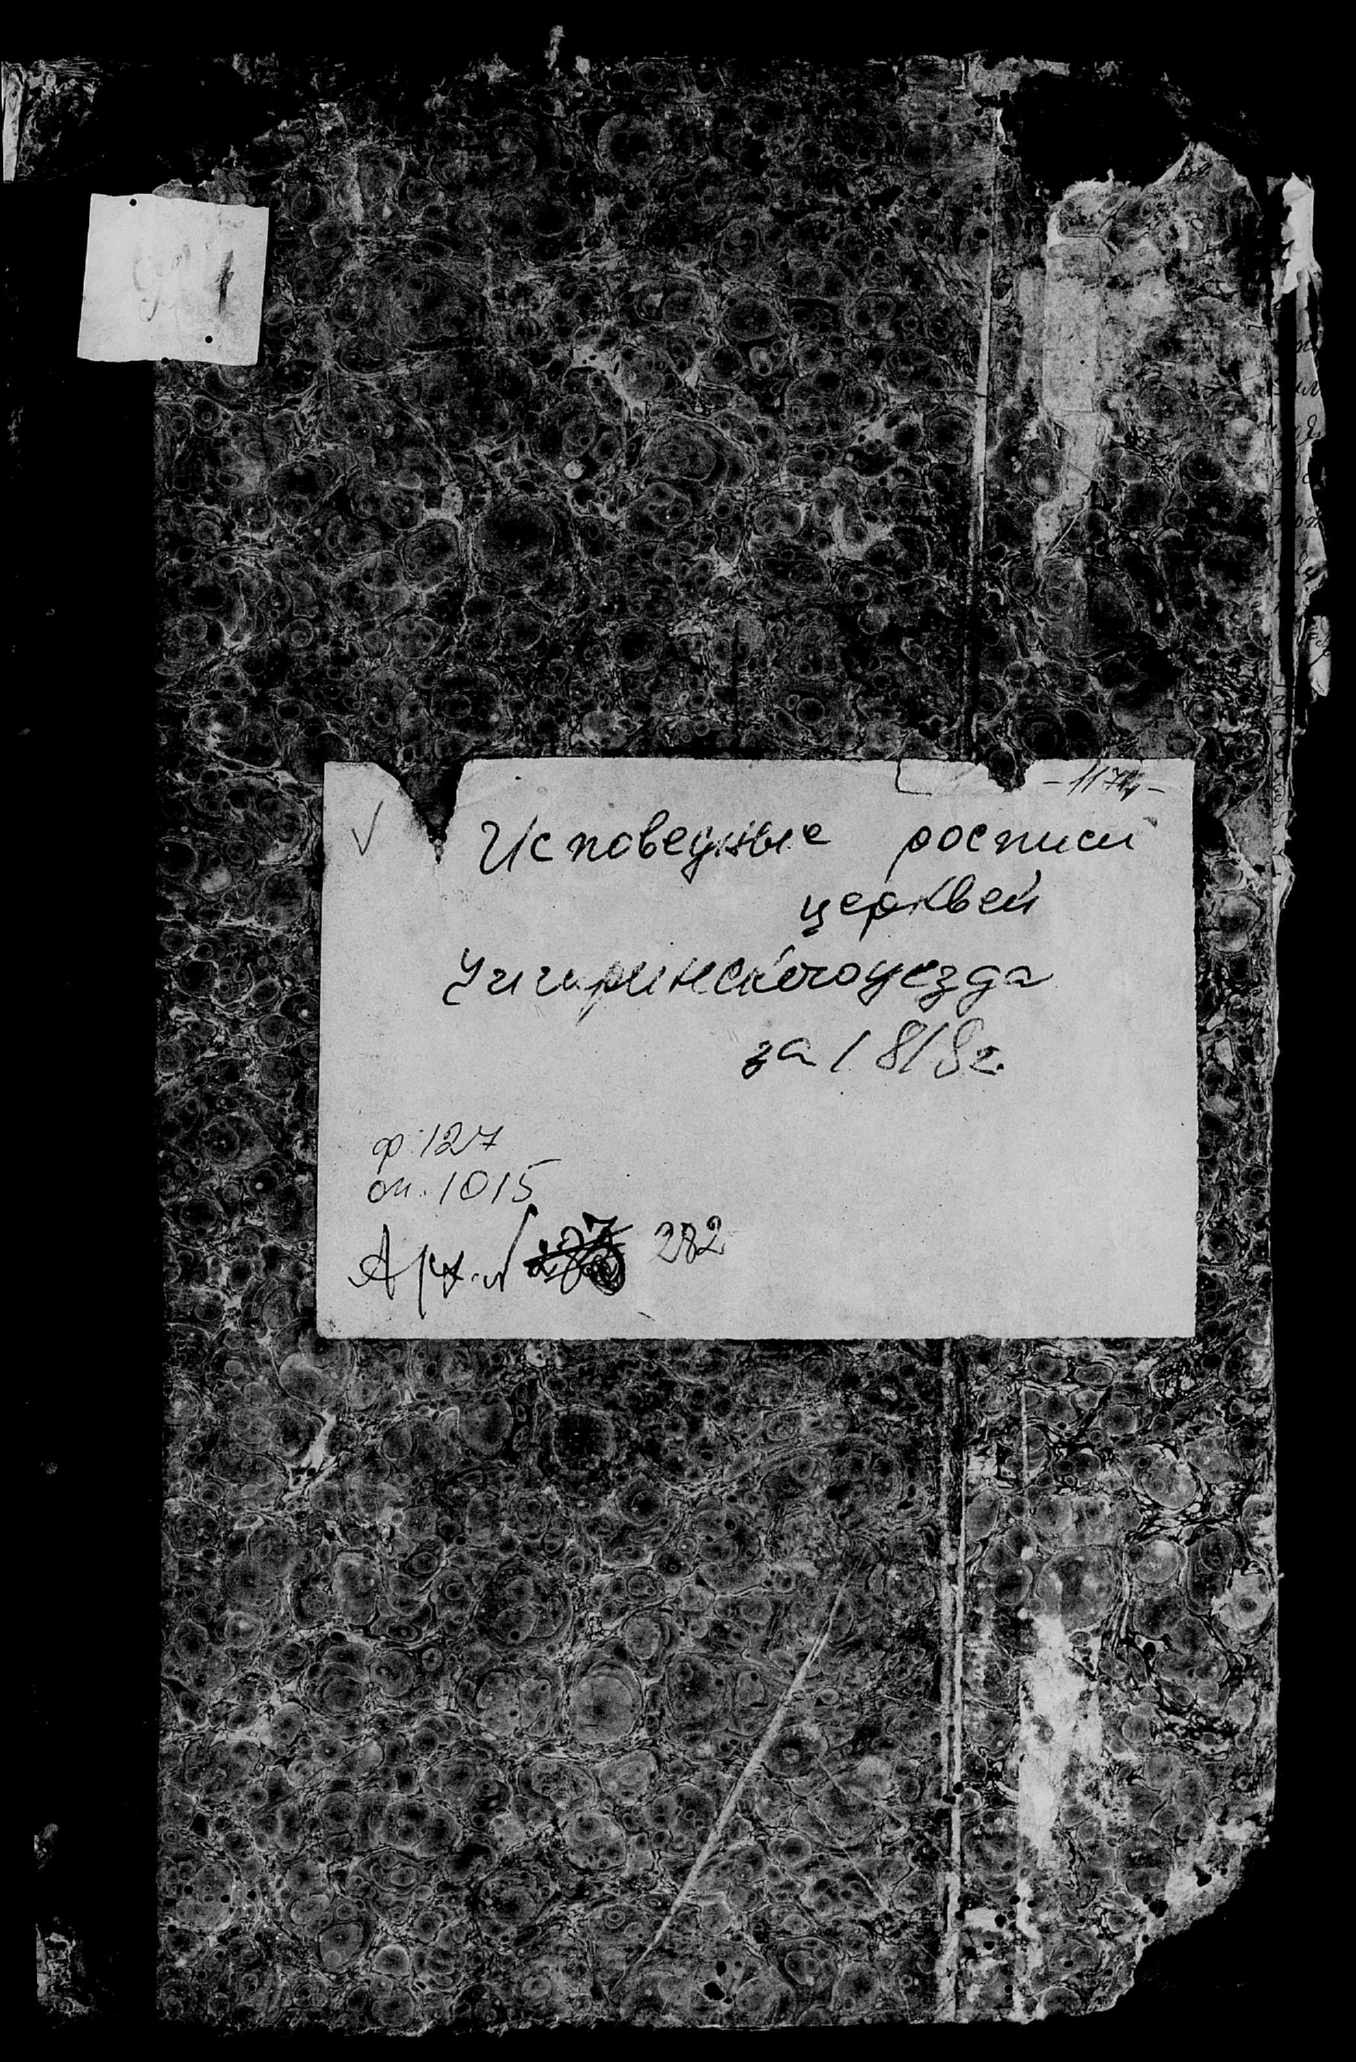 -1174-
Исповедные росписи
церквей
Чигиринского уезда
за 1818 г.
ф. 127
оп. 1015
Арх. № 282